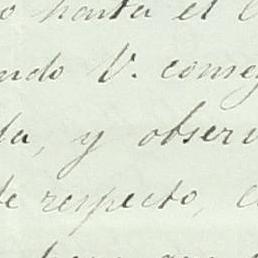 o hasta el
ndo V. conseg
da, y observ
de respecto,